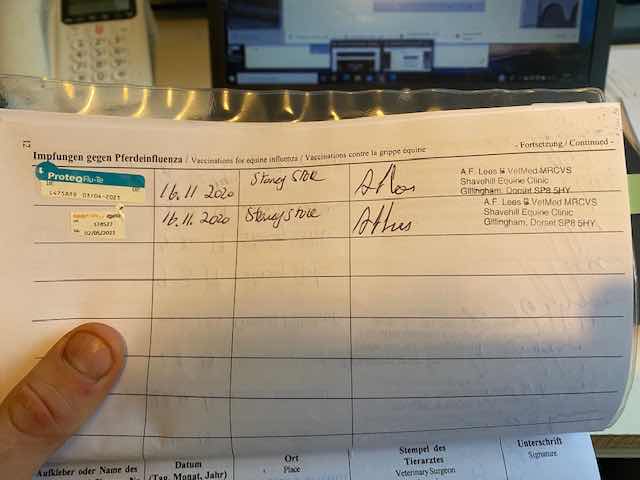 12
Impfungen gegen Pferdeinfluenza / Vaccinations for equine influenza / Vaccinations contre la grippe équine
- Fortsetzung / Continued -
ProteqFlu-Te
L475A89 03/04-2021
16.11 2020
Stoney Stoke
A.F. Lees B VetMed MRCVS
Shavehill Equine Clinic
Gillingham, Dorset SP8 5HY
02/05/2021
16.11.2020
Stoney Stoke
A.F. Lees B VetMed MRCVS
Shavehill Equine Clinic
Gillingham, Dorset SP8 5HY
Aufkleber oder Name des
Datum
(Tag, Monat, Jahr)
Ort
Place
Stempel des
Tierarztes
Veterinary Surgeon
Unterschrift
Signature